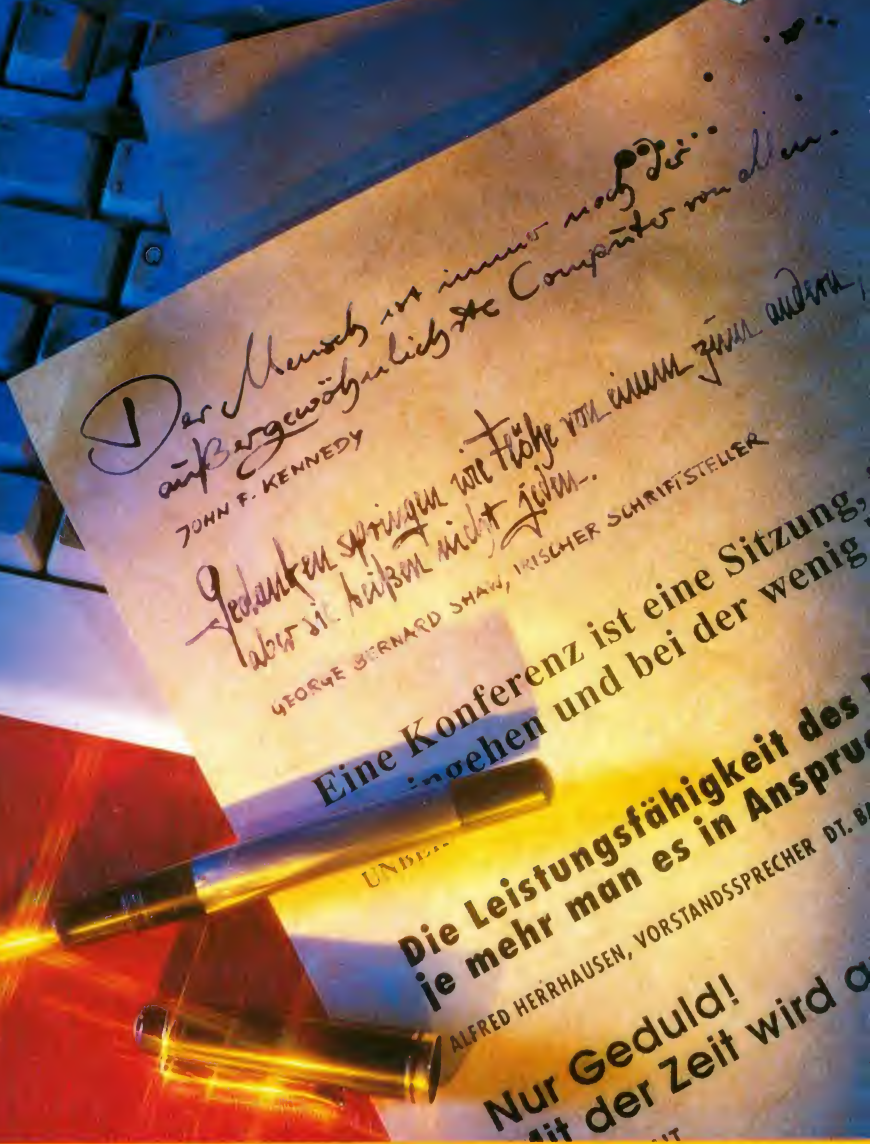 Der Mensch ist immer noch der
außergewöhnlichste Computer von allen.
JOHN F. KENNEDY
Gedanken springen wie Flöhe von einem zum andern,
aber sie beißen nicht jeden.
GEORGE BERNARD SHAW, IRISCHER SCHRIFTSTELLER
Eine Konferenz ist eine Sitzung,
und bei der wenig
Die Leistungsfähigkeit des
je mehr man es in
ALFRED HERRHAUSEN, VORSTANDSSPRECHER DT.
Nur Geduld!
der Zeit wird